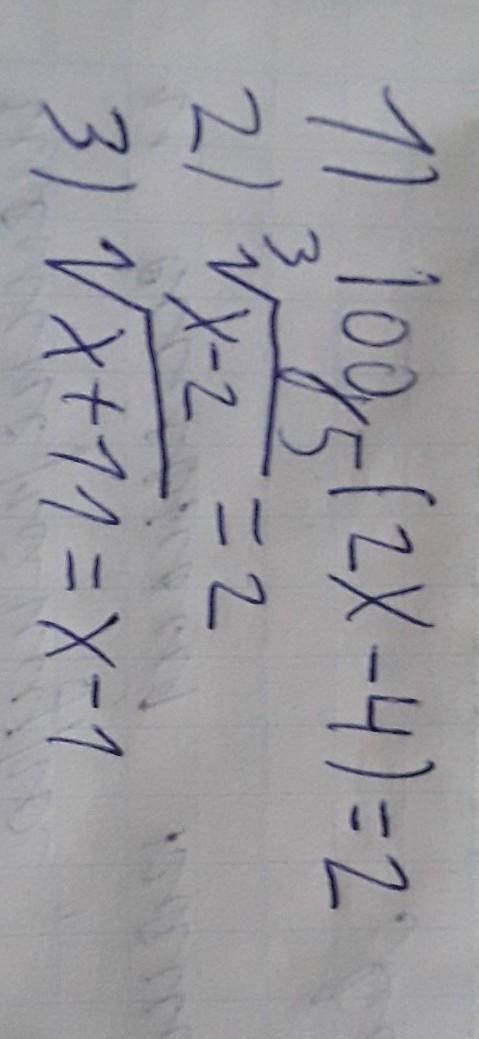 1) log₅(2x-4)=2
2) ∛x-2 = 2
3) √x+11=x-1